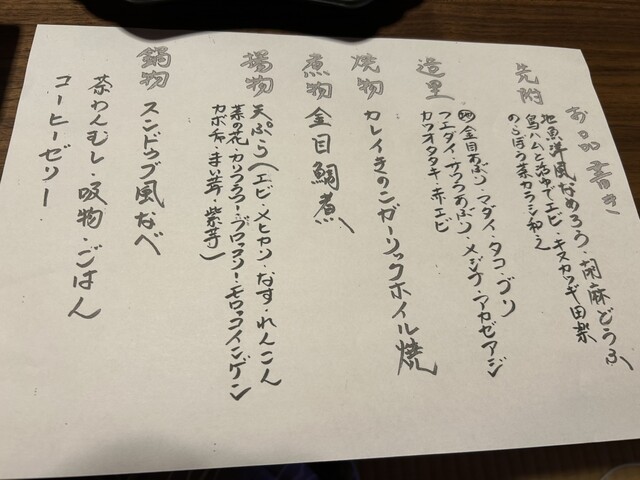 お品書き
先附
地魚洋風なめろう・胡麻どうふ
鳥ハムと茹でエビ・キスカツギ田楽
のらぼう菜カラシ和え
造里
金目あぶり・マダイ・タコ・ブリ
フエダイ・サワラあぶり・メジナ・アカゼアジ
カツオタタキ・赤エビ
焼物
カレイきのこガーリックホイル焼
煮物
金目鯛煮
揚物
天ぷら(エビ・メヒカリ・なす・れんこん
菜の花・カリフラワー・ブロッコリー・モロッコインゲン
カボチャ・まい茸・紫芋)
鍋物
スンドゥブ風なべ
茶わんむし・吸物・ごはん
コーヒーゼリー